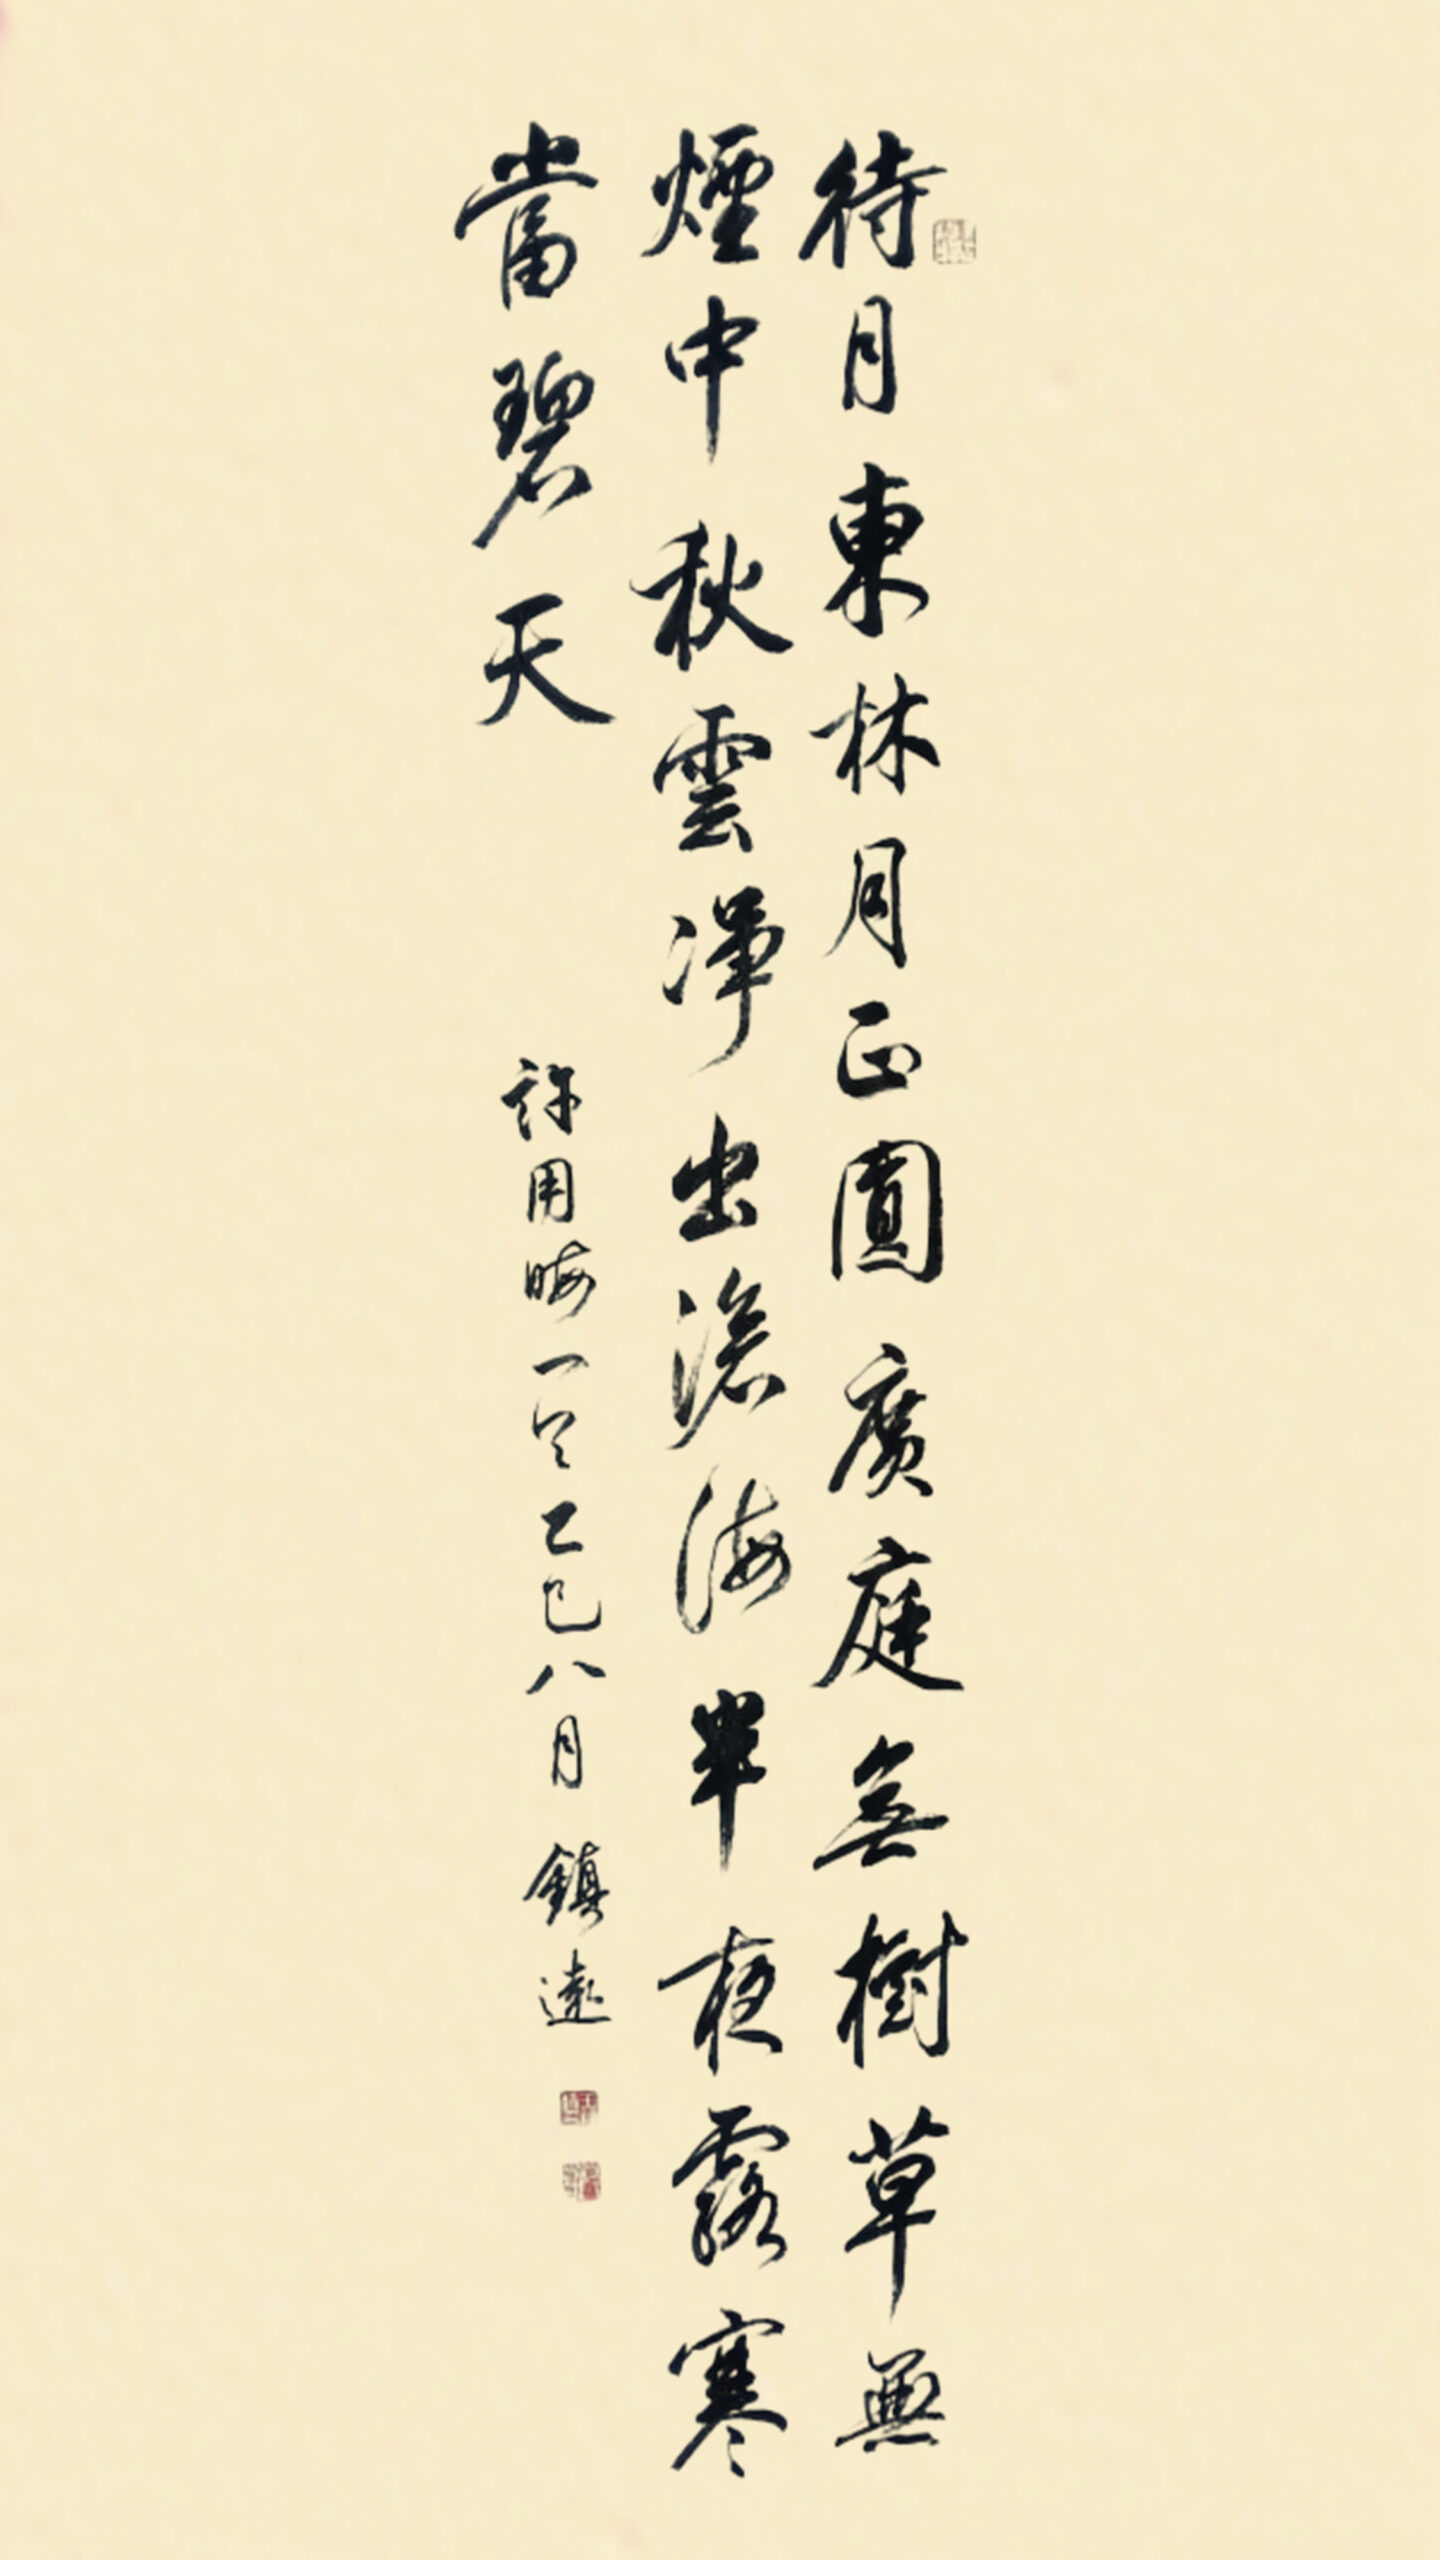 待月東林月正圓廣庭無樹草無
煙中秋雲淨出滄海半夜露寒
當碧天
許用晦一首乙巳八月鎮遠